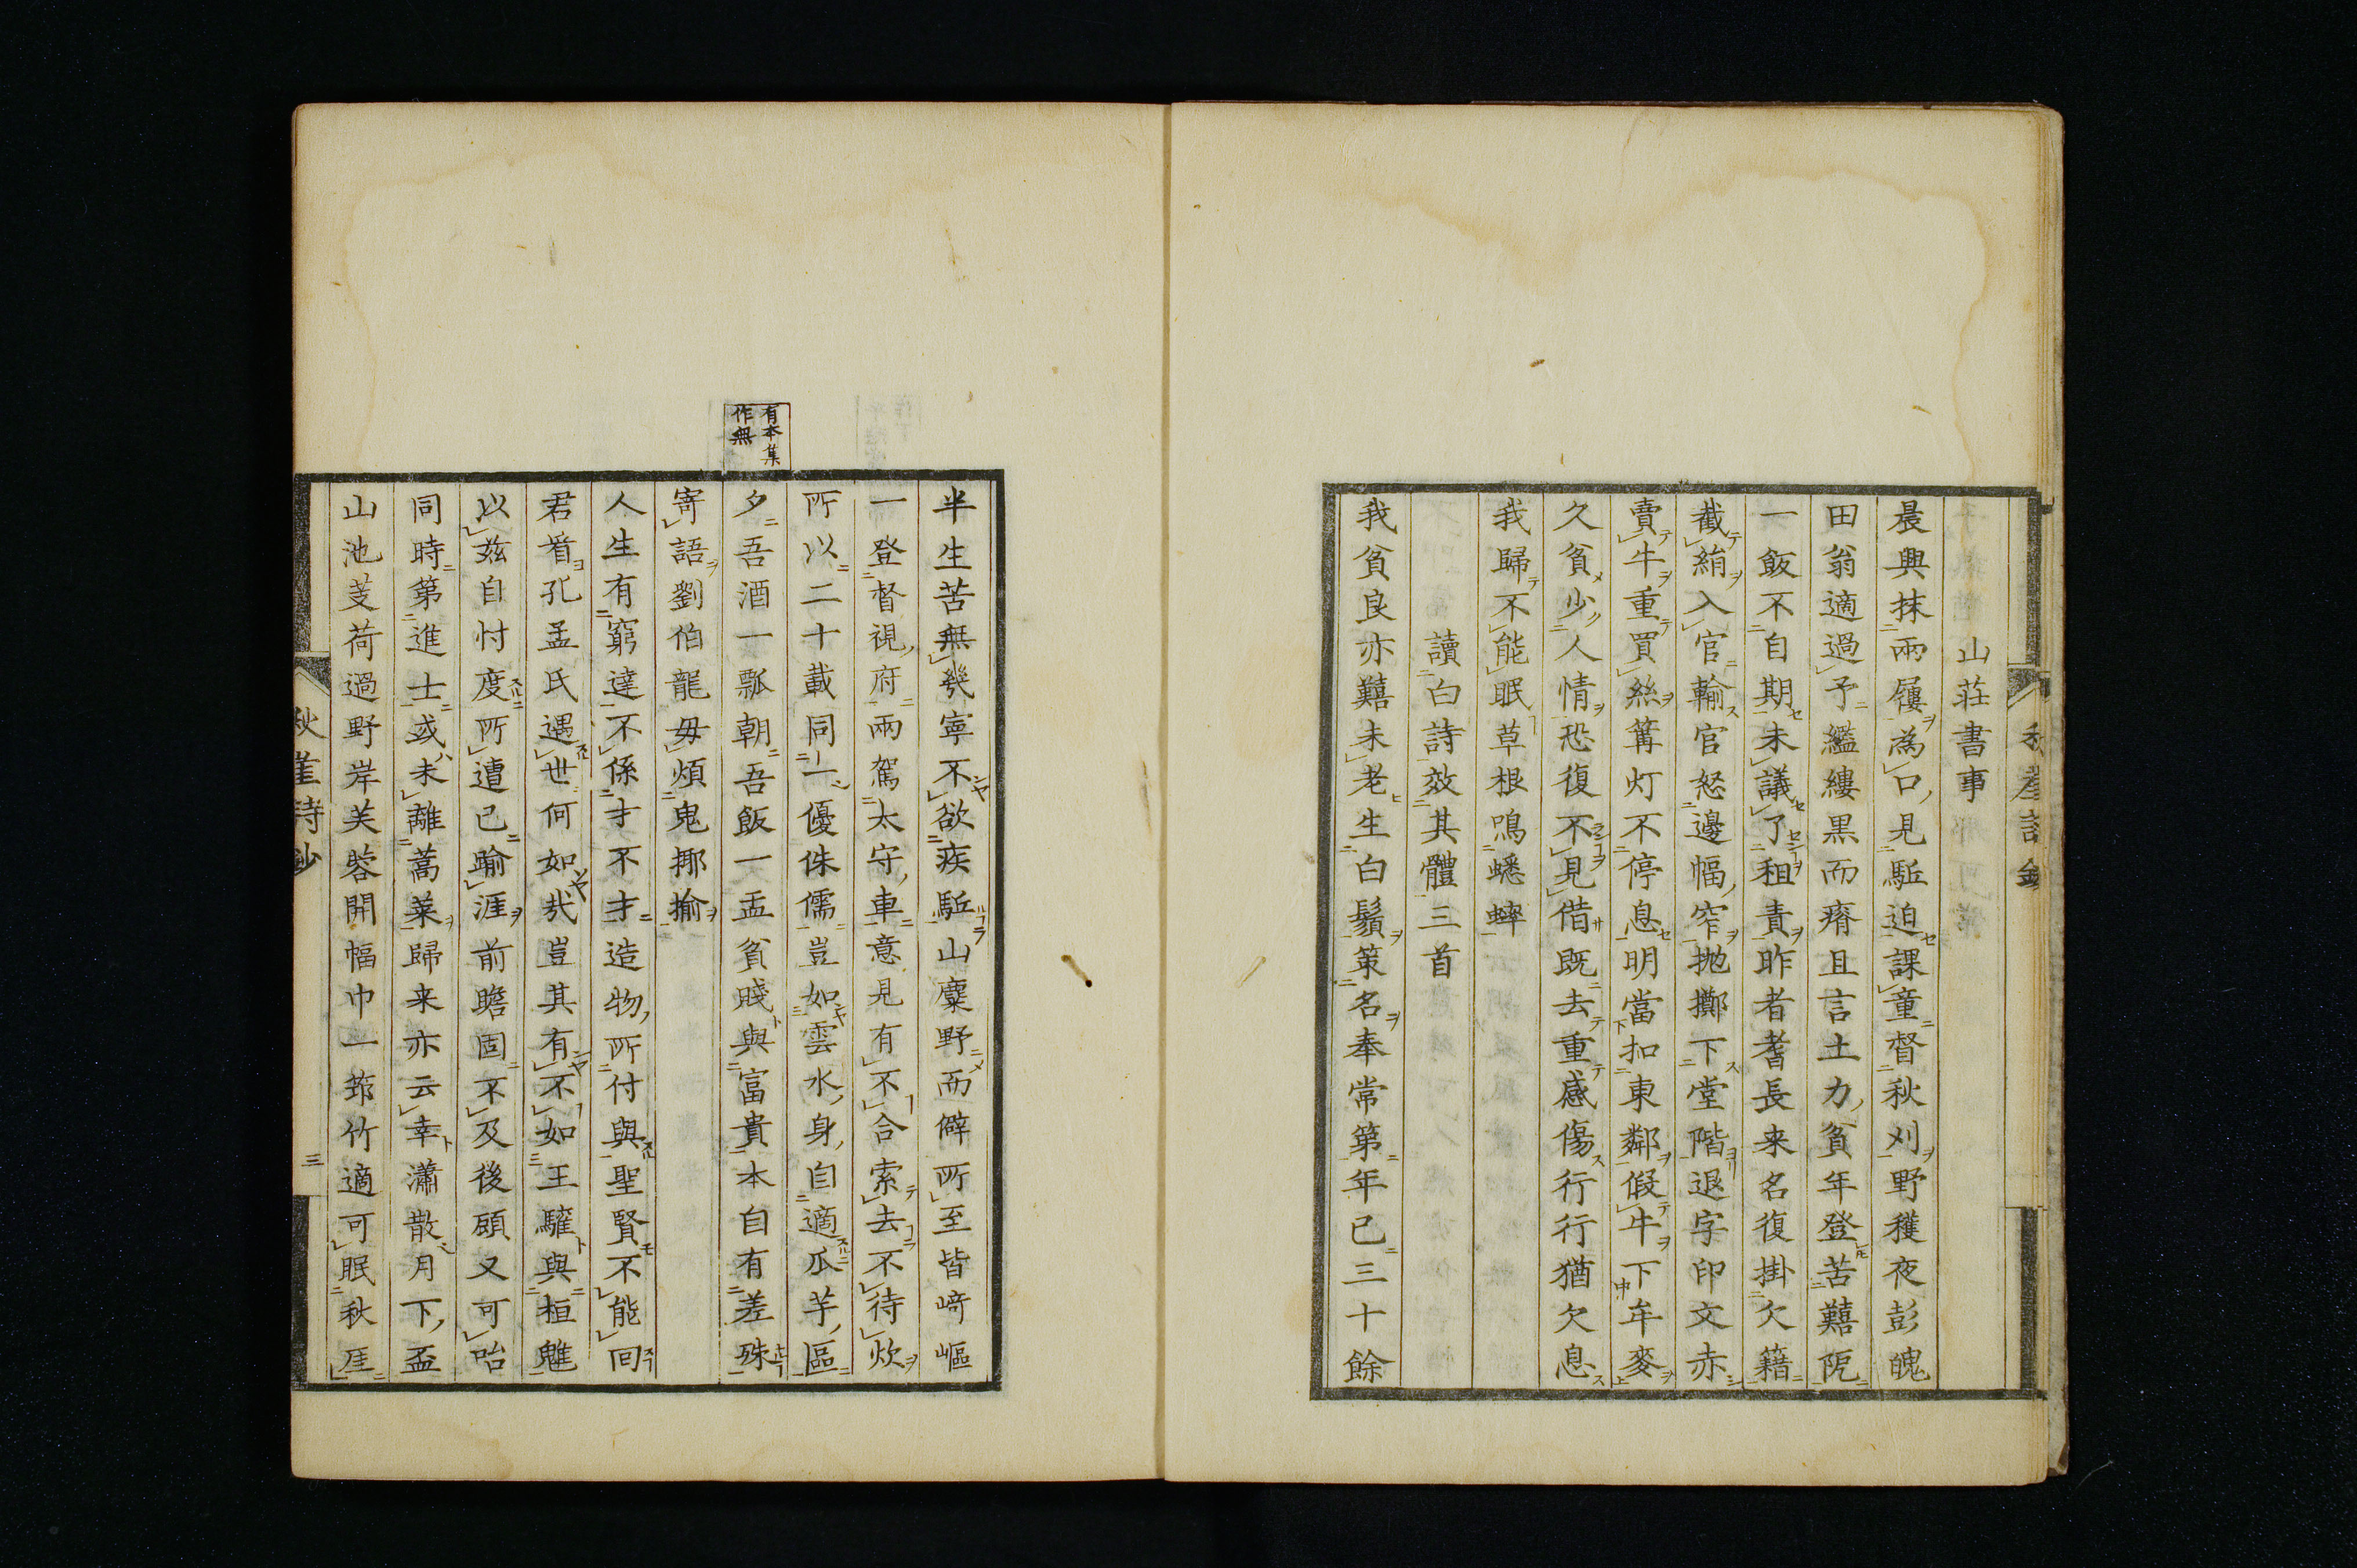 山莊書事
晨興抹兩屨為口見駈迫課童督秋刈野穫夜彭魄
田翁適過予繿縷黒而瘠且言土力貧年登苦囏阨
一飯不自期未議了租責昨者耆長来名復掛欠籍
截絹入官輸官怒邊幅窄抛擲下堂階退字印文赤
賣牛重買絲篝灯不停息明當扣東鄰假牛下牟麥
久貧少人情恐復不見借既去重感傷行行猶欠息
我歸不能眠草根鳴蟋蟀
讀白詩效其體三首
我貧良亦囏未老生白鬚策名奉常第年已三十餘
半生苦無幾寧不欲疾駈山麋野而僻所至皆崎嶇
一登督視府兩駕太守車意見有不合索去不待炊
所以二十載同一優侏儒豈如雲水身自適瓜芋區
夕吾酒一瓢朝吾飯一盂貧賤與富貴本自有差殊
有本集
作無
寄語劉伯龍毋煩鬼揶揄
人生有窮達不係才不才造物所付與聖賢不能回
君㸔孔孟氏遇世何如哉豈其有不如王驩與桓魋
以茲自忖度所遭已踰涯前瞻固不及後頋又可咍
同時第進士或未離蒿萊歸来亦云幸瀟散月下盃
山池芰荷過野岸芙蓉開幅巾一筇竹適可眠秋厓
秋崖詩鈔
三